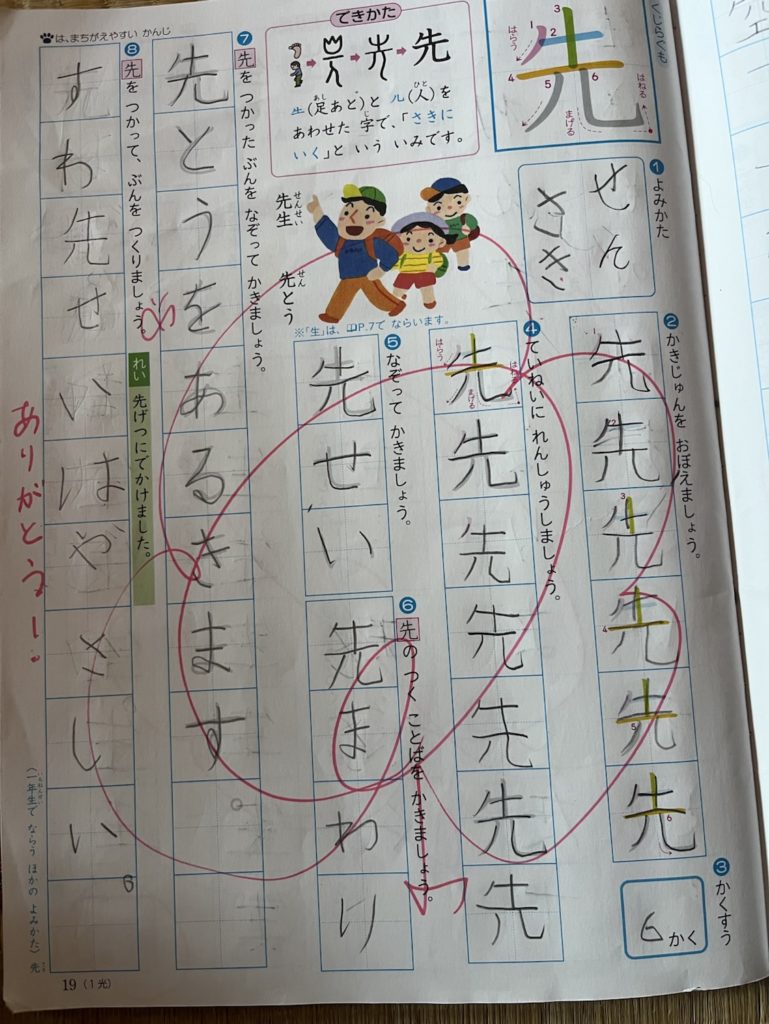 くじらぐも
先
1
2
3
4
5
6
はらう
まげる
はねる
できかた
先
(足あと)と 儿(人)を
あし
ひと
あわせた 字で、「さきに
じ
いく」と いう いみです。
① よみかた
せん
さき
② かきじゅんを おぼえましょう。
先
先
先
先
先
先
③ かくすう
6 かく
④ ていねいに れんしゅうしましょう。
先
はらう
まげる
はねる
先
先
先
先
先
先
先生
せんせい
先とう
せん
※「生」は、P.7で ならいます。
⑤ なぞって かきましょう。
先せい
⑥ 先の つく ことばを かきましょう。
先まわり
⑦ 先を つかった ぶんを なぞって かきましょう。
先とうをあるきます
は、まちがえやすい かんじ
⑧ 先を つかって、ぶんを つくりましょう。
れい 先げつにでかけました。
すわ先せいはやさしい
ありがとう!
(一年生で ならう ほかの よみかた) 先
いちねんせい
19(1光)